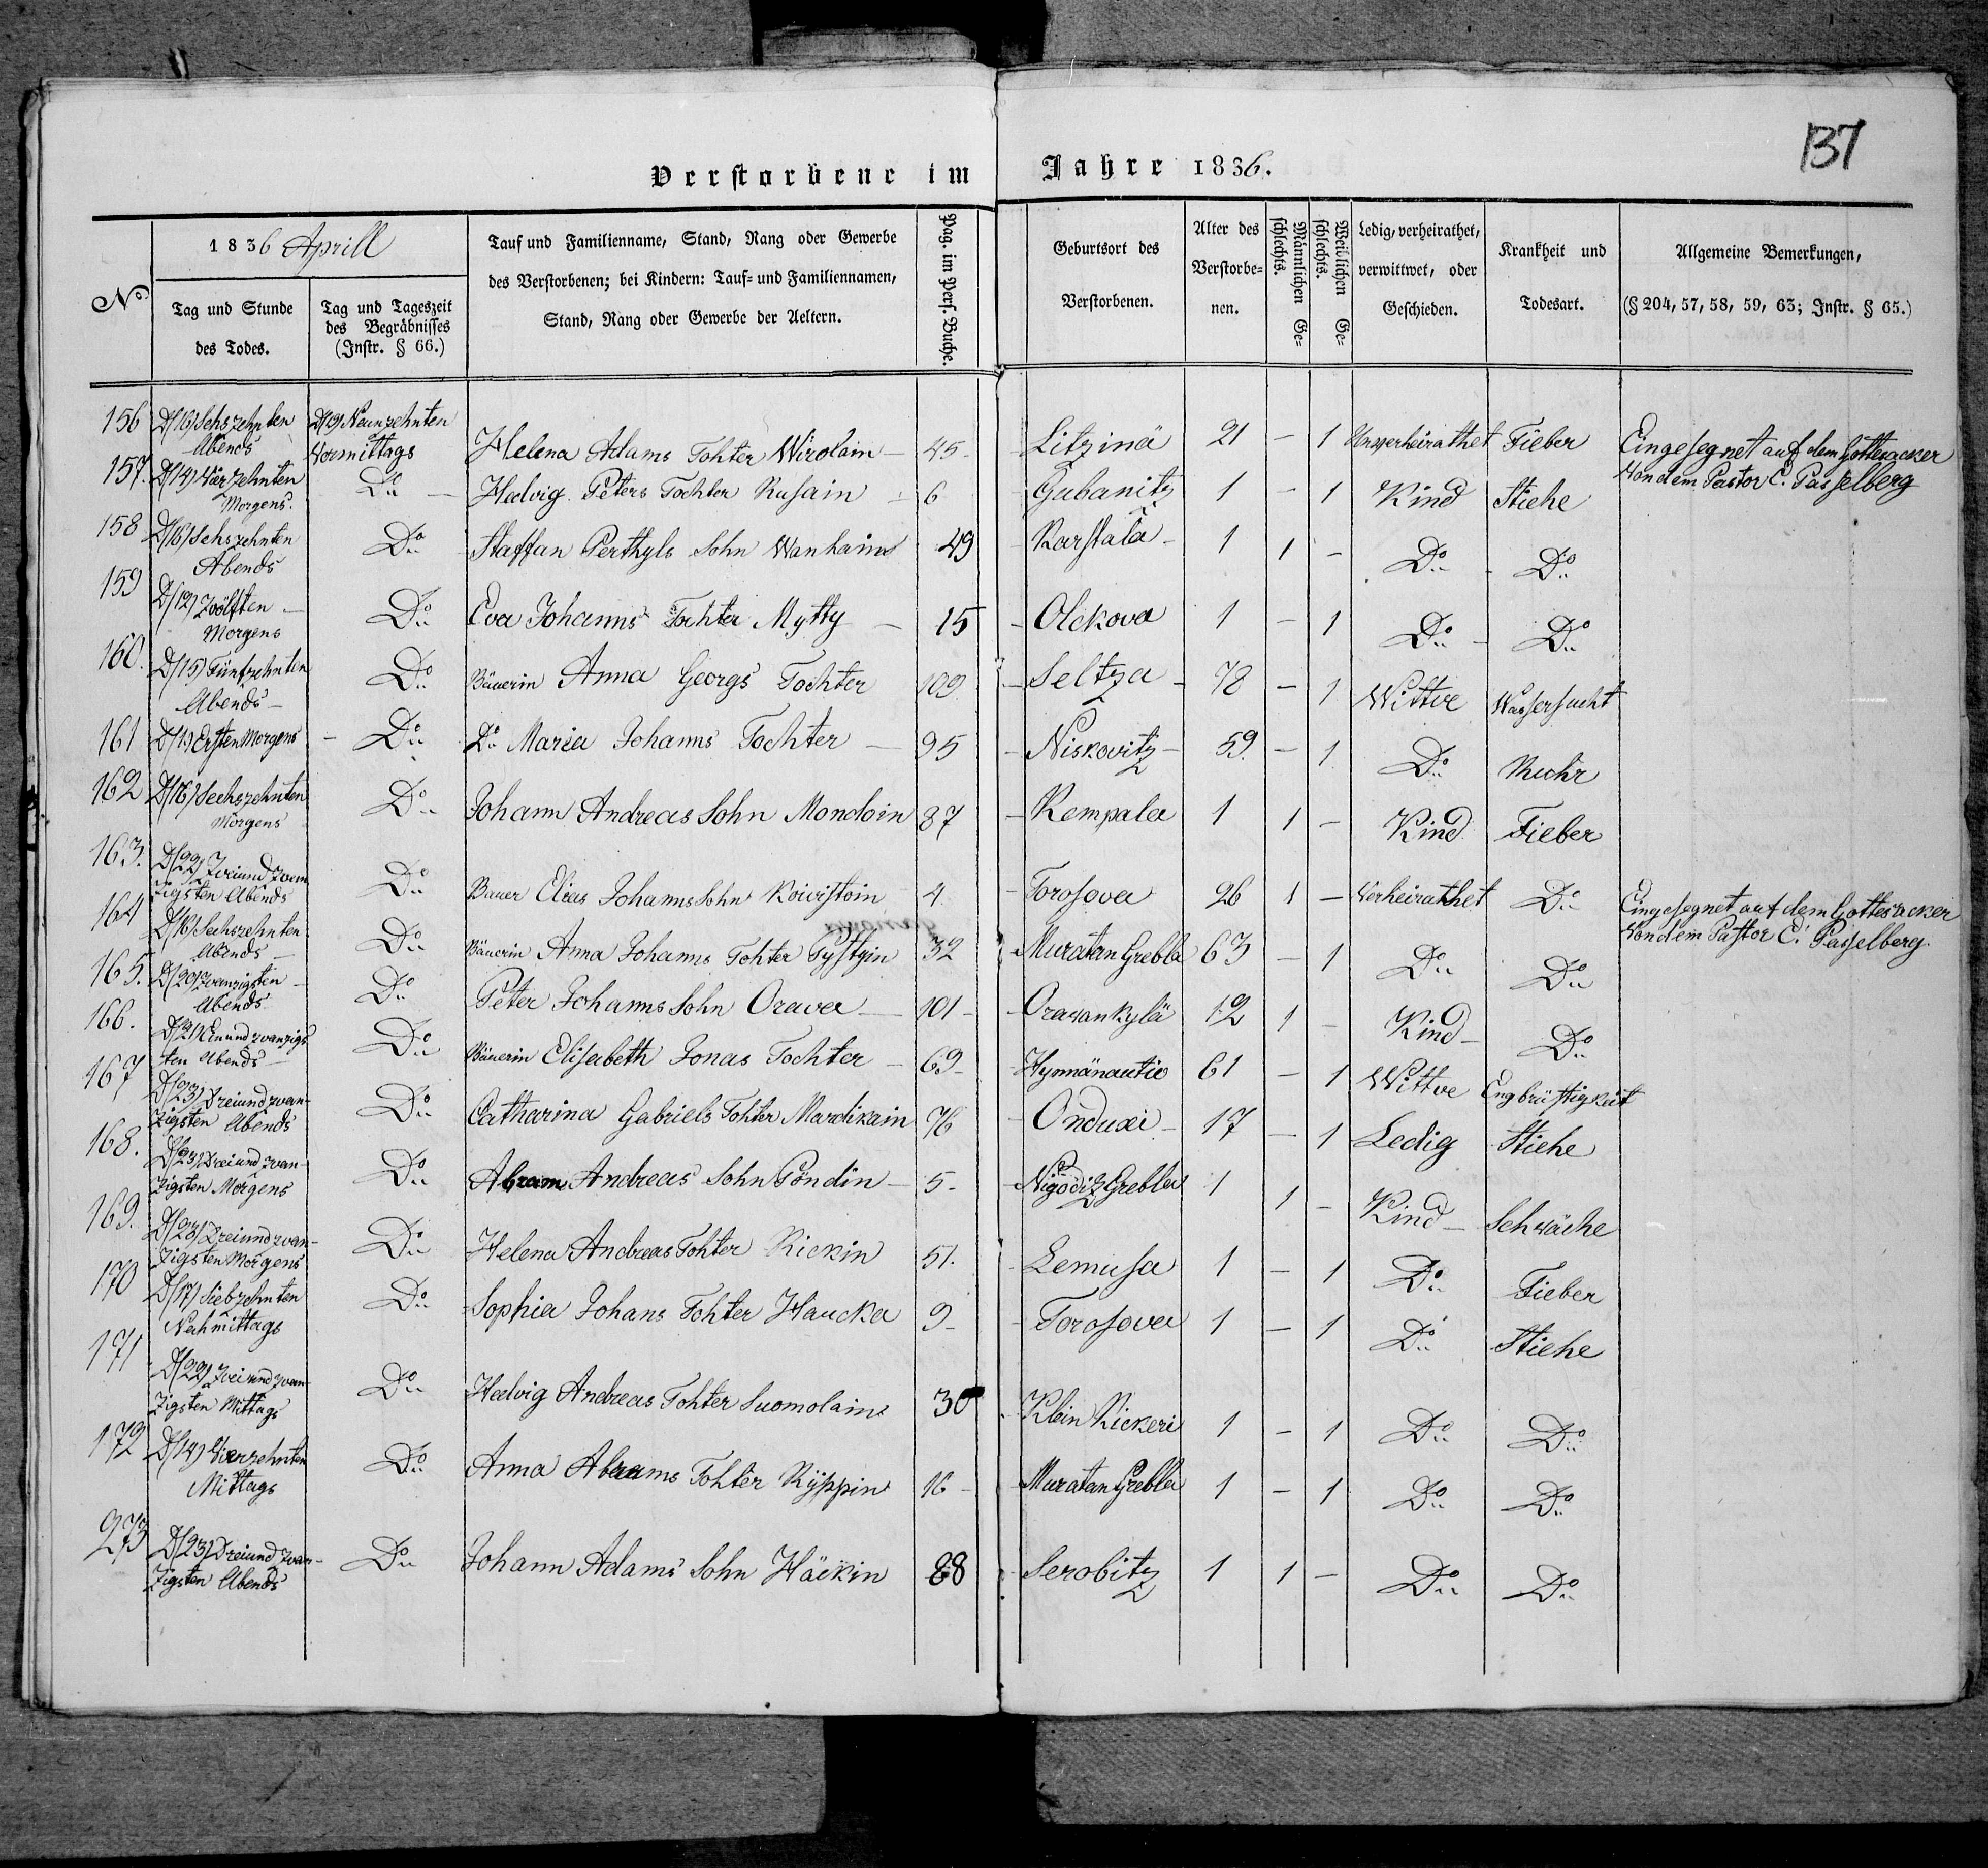 137
Verstorbene im Jahre 1836.
No.
1836 Aprill
Tag und Stunde des Todes.
Tag und Tageszeit des Begräbnisses (Instr. § 66.)
Tauf und Familienname, Stand, Rang oder Gewerbe des Verstorbenen; bei Kindern: Tauf- und Familiennamen, Stand, Rang oder Gewerbe der Aeltern.
Pag. im Pers. Buche.
Geburtsort des Verstorbenen.
Alter des Verstorbenen.
Männlichen Geschlechts.
Weiblichen Geschlechts.
Ledig, verheirathet, verwittwet, oder Geschieden.
Krankheit und Todesart.
Allgemeine Bemerkungen, (§ 204, 57, 58, 59, 63; Instr. § 65.)
156 D/16/ Sehszehnten Abends D/19/ Neunzehnten Vormittags Helena Adams Tohter Wirolain — 45 - Litzinä 21 — 1 Unverheirathet Fieber Eingesegnet auf dem Gottesacker Von dem Pastor C. Passelberg
157. D/14/ Vierzehnten Morgens. Do — Hedvig Peters Tochter Rusain 6 Gubanitz 1 — 1 Kind Stiehe
158 D/16/ Sehszehnten Abends Do Staffan Perthyls Sohn Wanhain 49 Karstala - 1 1 - Do Do
159 D/12/ Zwölften — Morgens Do Eva Johanns Tochter Mytty — 15 - Olckova 1 — 1 Do - Do
160. D/15/ Fünfzehnten Abends — Do Bäuerin Anna Georgs Tochter 109 Seltza - 78 — 1 Wittve Wassersucht
161 D/1/ Ersten Morgens - Do Do Maria Johanns Tochter — 95 - Niskovitz - 59. — 1 Do Ruhr
162 D/16/ Sechszehnten Morgens Do Johann Andreas Sohn Mondoin 87 - Kempala 1 1 - Kind Fieber
163. D/22/ Zweiundzwanzigsten Abends Do Bauer Elias Johanns Sohn Koivistoin 4. - Torosova 26 1 — Verheirathet Do Eingesegnet auf dem Gottesacker Von dem Pastor C. Passelberg.
164 D/16/ Sechszehnten Abends — Do Bäuerin Anna Johanns Tohter Pystyin 32 - Muratan Grebla 63 — 1 Do Do
165. D/20/ Zwanzigsten — Abends Do Peter Johanns Sohn Orava — 101 - Orawankylä 12 1 - Kind - Do
166. D/21/ Einundzwanzigsten Abends — Do Bäuerin Elisabeth Jonas Tochter — 69 - Hynnänautio 61 — 1 Wittve Engbrüstigkeit
167 D/23/ Dreiundzwanzigsten Abends Do Catharina Gabriels Tohter Mardikain 76 - Onduxi - 17 — 1 Ledig Stiehe
168. D/23/ Dreiundzwanzigsten Morgens Do Abram Andreas Sohn Pöndin — 5 - Nigoditz Grebla 1 1 - Kind - Schwäche
169. D/23/ Dreiundzwanzigsten Morgens Do Helena Andreas Tohter Kiekin 51. - Lemusa 1 — 1 Do Fieber
170 D/17/ Siebzehnten Nahmittags Do Sophia Johans Tohter Haucka 9 - Torosova 1 — 1 Do Stiehe
171 D/22/ Zweiundzwanzigsten Mittags Do Hedvig Andreas Tohter Suomolain 30 Klein Kickeri 1 — 1 Do Do
172 D/14/ Vierzehnten Mittags Do Anna Abrams Tohter Ryppin 16 - Muratan Grebla 1 — 1 Do Do
273 D/23/ Dreiundzwanzigsten Abends Do Johann Adams Sohn Häckin 88 Serobitz 1 1 - Do Do